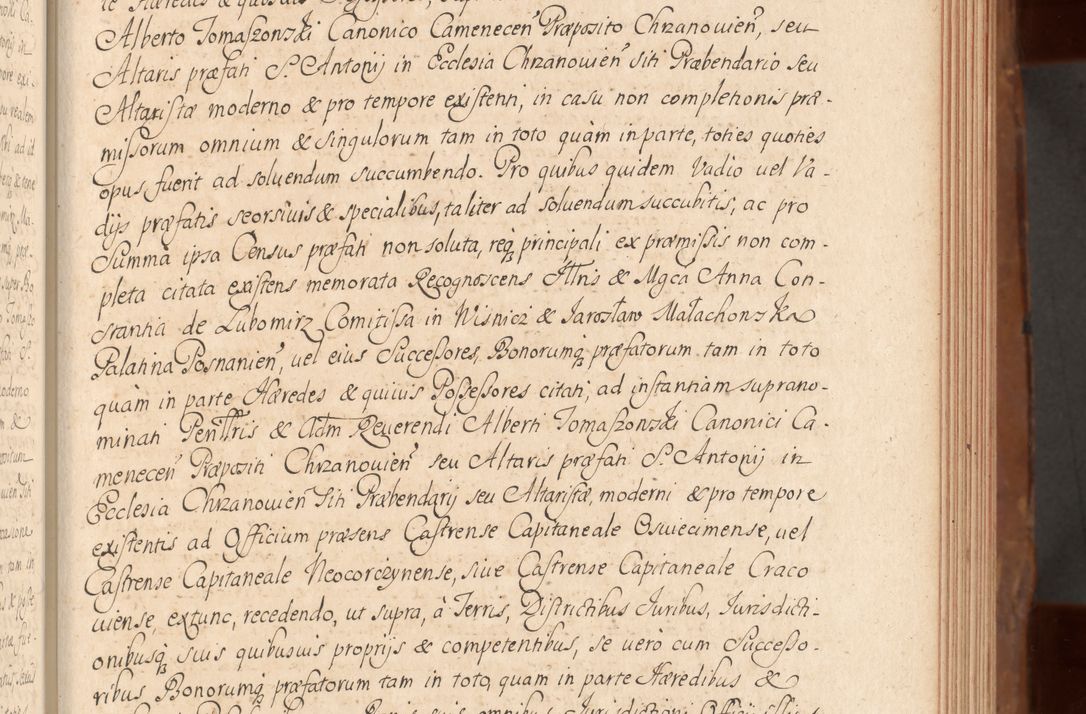 Alberto Tomaszonski Canonico Camenecen̄ Præposito Chrzanouien̄, seu
Altaris præfati S. Antonij in Ecclesia Chrzanouien̄ siti Præbendario seu
Altaristæ moderno & pro tempore existenti, in casu non completionis præ-
missorum omnium & singulorum tam in toto quàm in parte, toties quoties
opus fuerit ad soluendum succumbendo. Pro quibus quidem Vadio uel Va-
dijs præfatis seorsiuis & specialibus, taliter ad soluendum succubitis, ac pro
Summa ipsa Census præfati non soluta, reqꝫ principali ex præmissis non com-
pleta citata existens memorata Recognoscens Illtris & Mgca Anna Con-
stantia de Lubomirz Comitissa in Wisnicz & Jarosław Małachonska
Palatina Posnanien̄, uel eius Successores, Bonorumqꝫ præfatorum tam in toto
quàm in parte Hæredes & quiuis Possessores citati, ad instantiam suprano-
minati Penllris & Adm Reuerendi Alberti Tomaszonski Canonici Ca-
menecen̄ Præpositi Chrzanouien̄ seu Altaris præfati S. Antonij in
Ecclesia Chrzanouien̄ siti Præbendarij seu Altaristæ, moderni & pro tempore
existentis ad Officium præsens Castrense Capitaneale Osuiecimense, uel
Castrense Capitaneale Neocorczynense, siue Castrense Capitaneale Craco
uiense, extunc, recedendo, ut supra, à Terris, Districtibus Iuribus, Iurisdicti-
onibusqꝫ suis quibusuis proprijs & competentibus, se uerò cum Successo-
ribus Bonorumqꝫ præfatorum tam in toto, quam in parte Hæredibus &